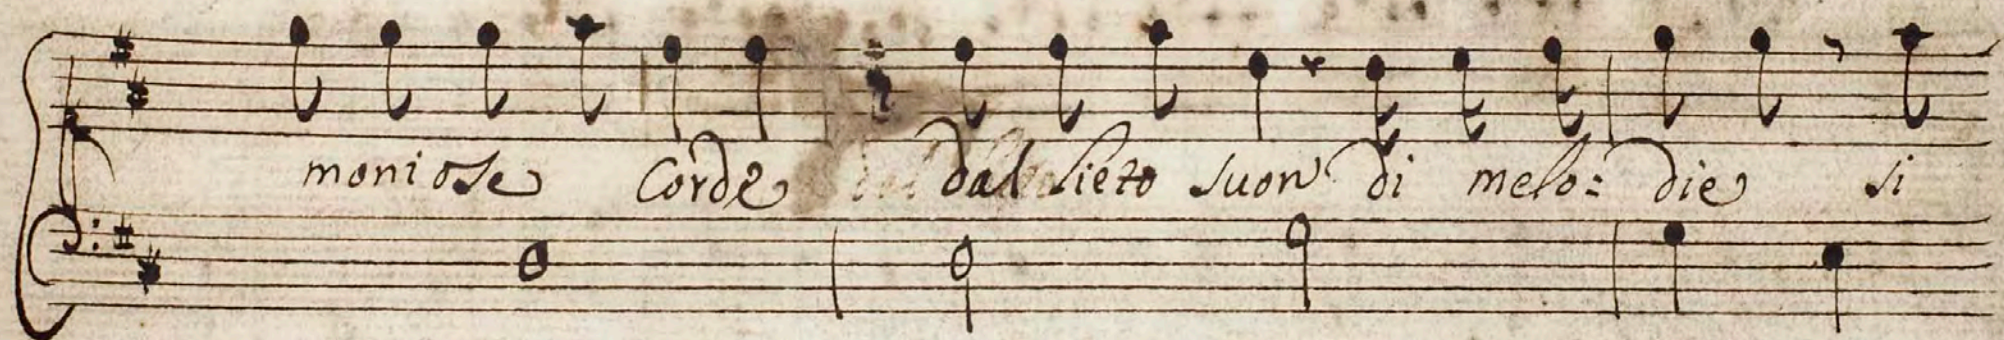 moniose Corde dal lieto suon di melo= die si